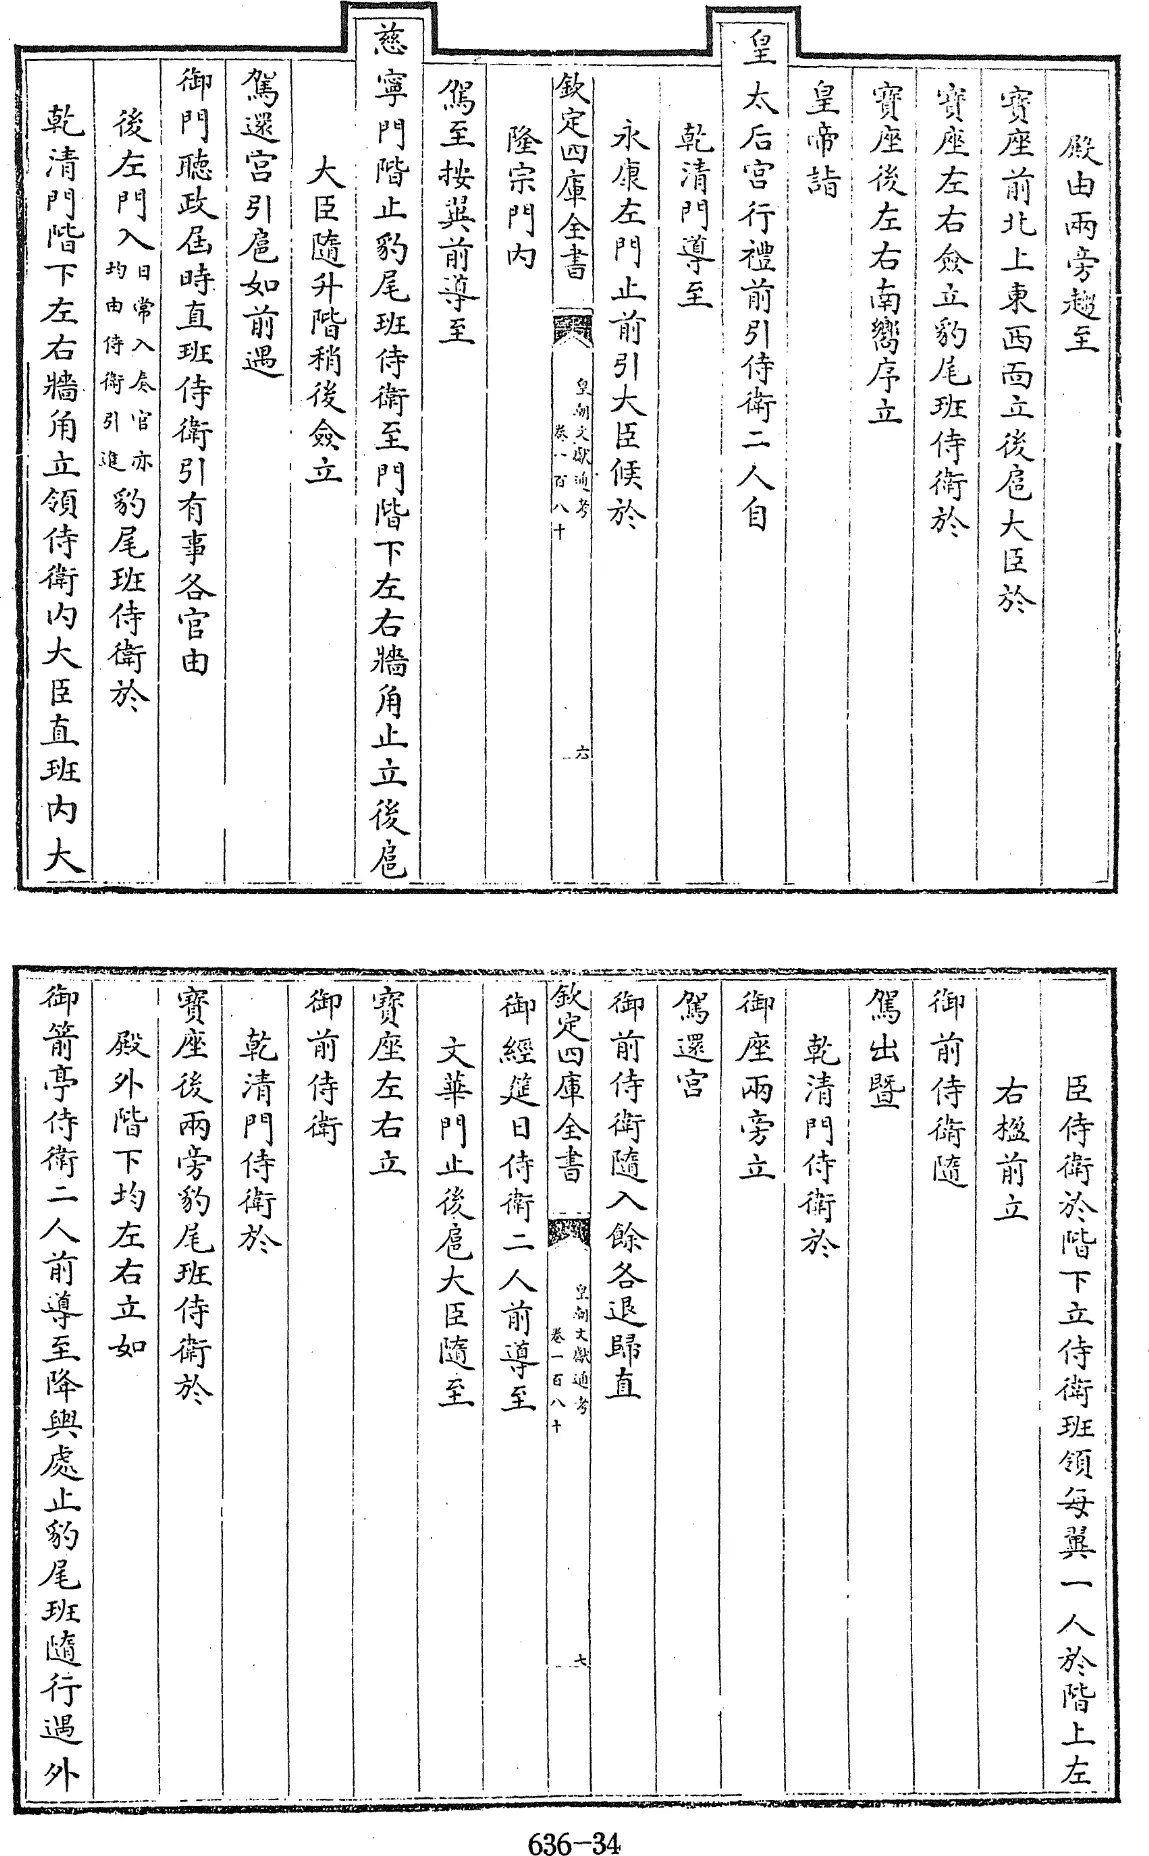 殿由兩旁趨至
寶座前北上東西面立後扈大臣於
寶座左右僉立豹尾班侍衛於
寶座後左右南嚮序立
皇帝詣
皇太后宮行禮前引侍衛二人自
乾清門導至
永康左門止前引大臣候於
欽定四庫全書
皇朝文獻通考
卷一百八十
六
隆宗門内
駕至按翼前導至
慈寧門階止豹尾班侍衛至門階下左右牆角止立後扈
大臣隨升階稍後僉立
駕還宫引扈如前遇
御門聽政屆時直班侍衛引有事各官由
後左門入日常入奏官亦
均由侍衛引進豹尾班侍衛於
乾清門階下左右牆角立領侍衛内大臣直班内大
臣侍衛於階下立侍衛班領每翼一人於階上左
右楹前立
御前侍衛隨
駕出暨
乾清門侍衛於
御座兩旁立
駕還宫
御前侍衛隨入餘各退歸直
欽定四庫全書
皇朝文獻通考
卷一百八十
七
御經筵日侍衛二人前導至
文華門止後扈大臣隨至
寶座左右立
御前侍衛
乾清門侍衛於
寶座後兩旁豹尾班侍衛於
殿外階下均左右立如
御箭亭侍衛二人前導至降輿處止豹尾班隨行遇外
636-34